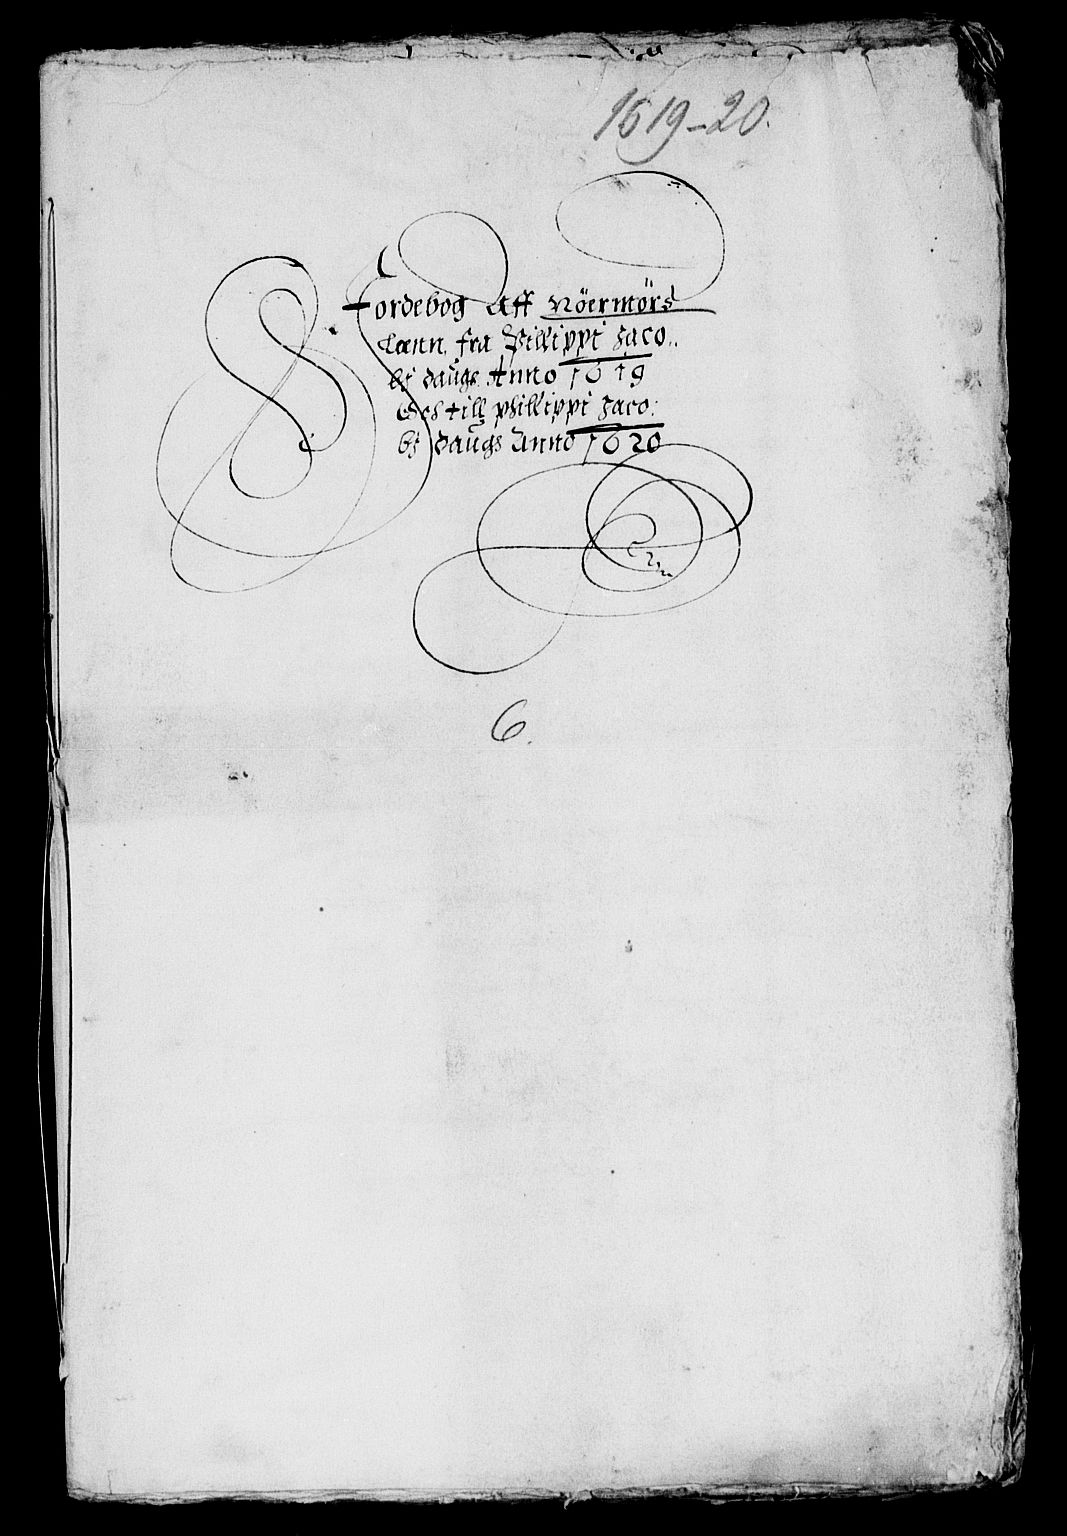 1619-20.
Jordebog Aff Nöermörs
Lænn, fra Phillippi Jaco..
bj daugs Anno 1619
Och till phillippi Jaco:
bj daugs Anno 1620
6.